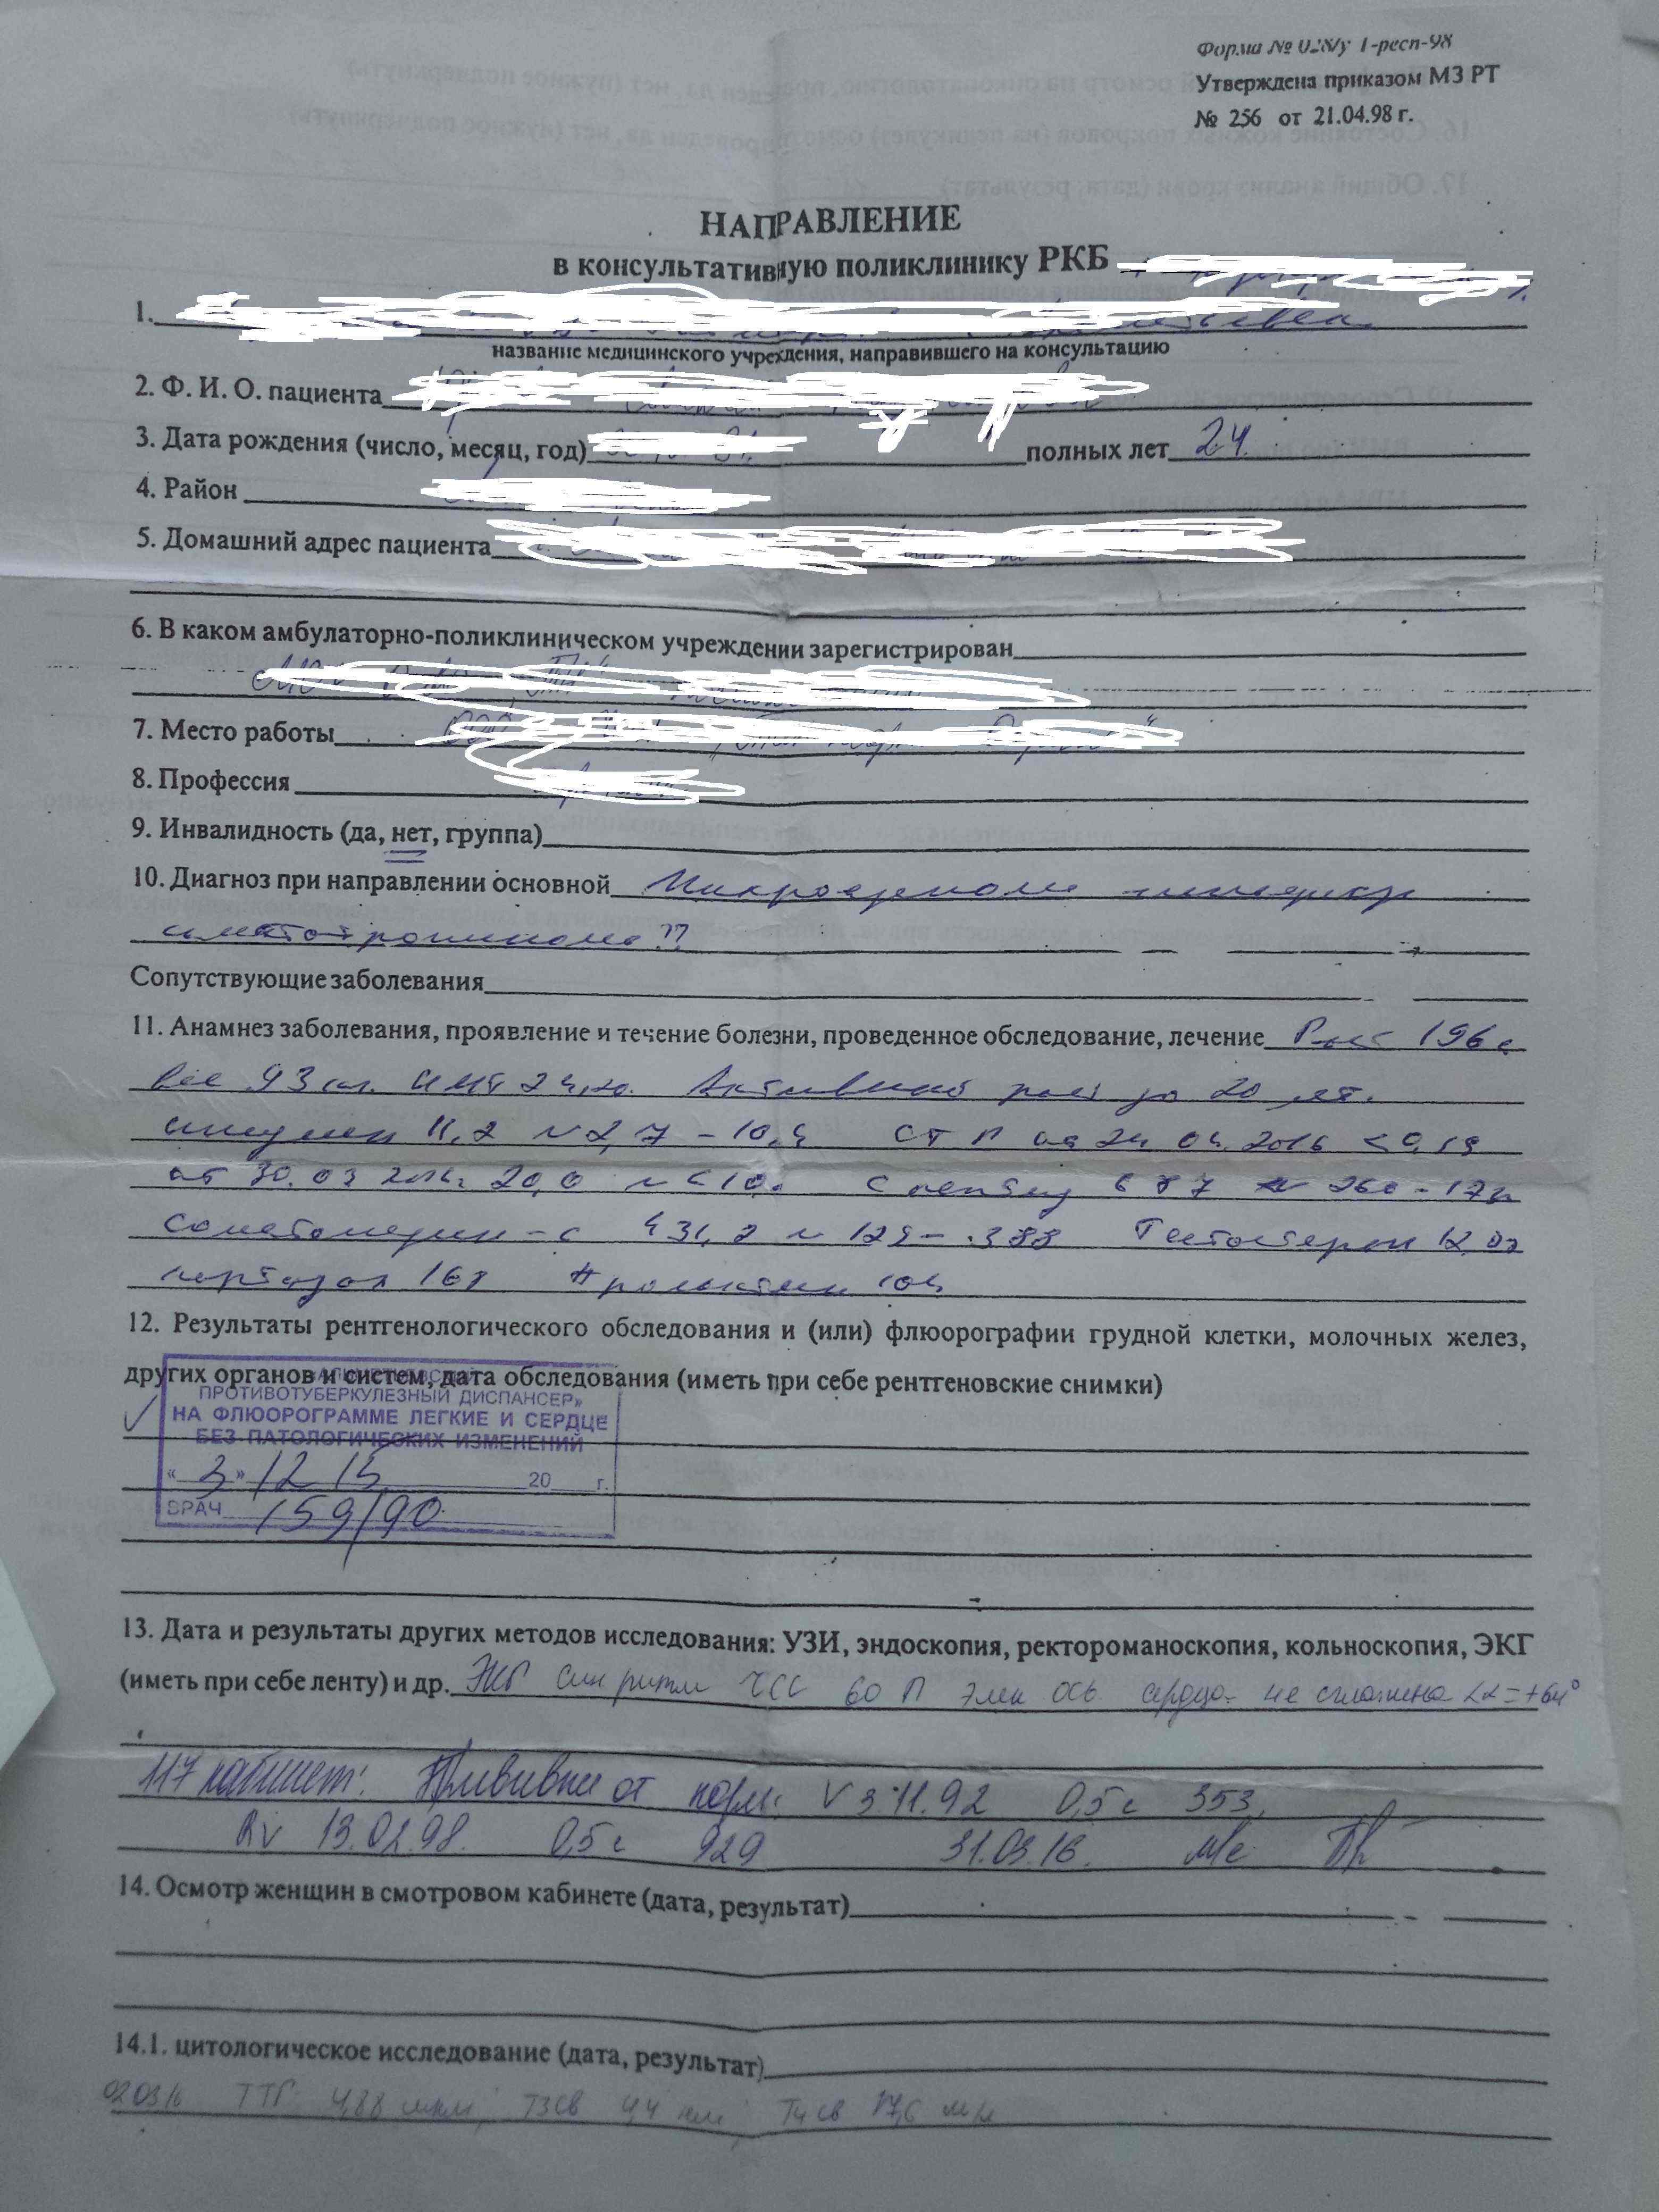 Форма № 028/у 1-респ-98
Утверждена приказом МЗ РТ
№ 256 от 21.04.98 г.
НАПРАВЛЕНИЕ
в консультативную поликлинику РКБ
1.
название медицинского учреждения, направившего на консультацию
2. Ф. И. О. пациента
3. Дата рождения (число, месяц, год) полных лет 24.
4. Район
5. Домашний адрес пациента
6. В каком амбулаторно-поликлиническом учреждении зарегистрирован
7. Место работы
8. Профессия
9. Инвалидность (да, нет, группа)
10. Диагноз при направлении основной Микроаденома гипофиза
соматотропинома??
Сопутствующие заболевания
11. Анамнез заболевания, проявление и течение болезни, проведенное обследование, лечение Рост 196
вес 93 кг. ИМТ 24,20. Активный рост до 20 лет.
инсулин 11,2 N 2,7 - 10,4 СТГ от 24.04.2016 <0,19
от 30.03 2016г 20,0 N <10. С пептид 687 N 260-17
Соматомедин-с 431,2 N 129-388 Тестостерон 12,02
кортизол 168 Пролактин 104
12. Результаты рентгенологического обследования и (или) флюорографии грудной клетки, молочных желез,
других органов и систем, дата обследования (иметь при себе рентгеновские снимки)
ПРОТИВОТУБЕРКУЛЕЗНЫЙ ДИСПАНСЕР»
НА ФЛЮОРОГРАММЕ ЛЕГКИЕ И СЕРДЦЕ
БЕЗ ПАТОЛОГИЧЕСКИХ ИЗМЕНЕНИЙ
« 3 » 12 15 20 г.
ВРАЧ 159/90
13. Дата и результаты других методов исследования: УЗИ, эндоскопия, ректороманоскопия, кольноскопия, ЭКГ
(иметь при себе ленту) и др. ЭКГ син ритм ЧСС 60 П элек ось сердца не отклонена ∠α=+64°
117 кабинет: Прививки от кори: V 3.11.92 0,5 с 353,
RV 13.02.98. 0,5 с 929 31.03.16. М/с
14. Осмотр женщин в смотровом кабинете (дата, результат)
14.1. цитологическое исследование (дата, результат)
020316 ТТГ 4,88 Т3св 4,4 Т4 св 17,6